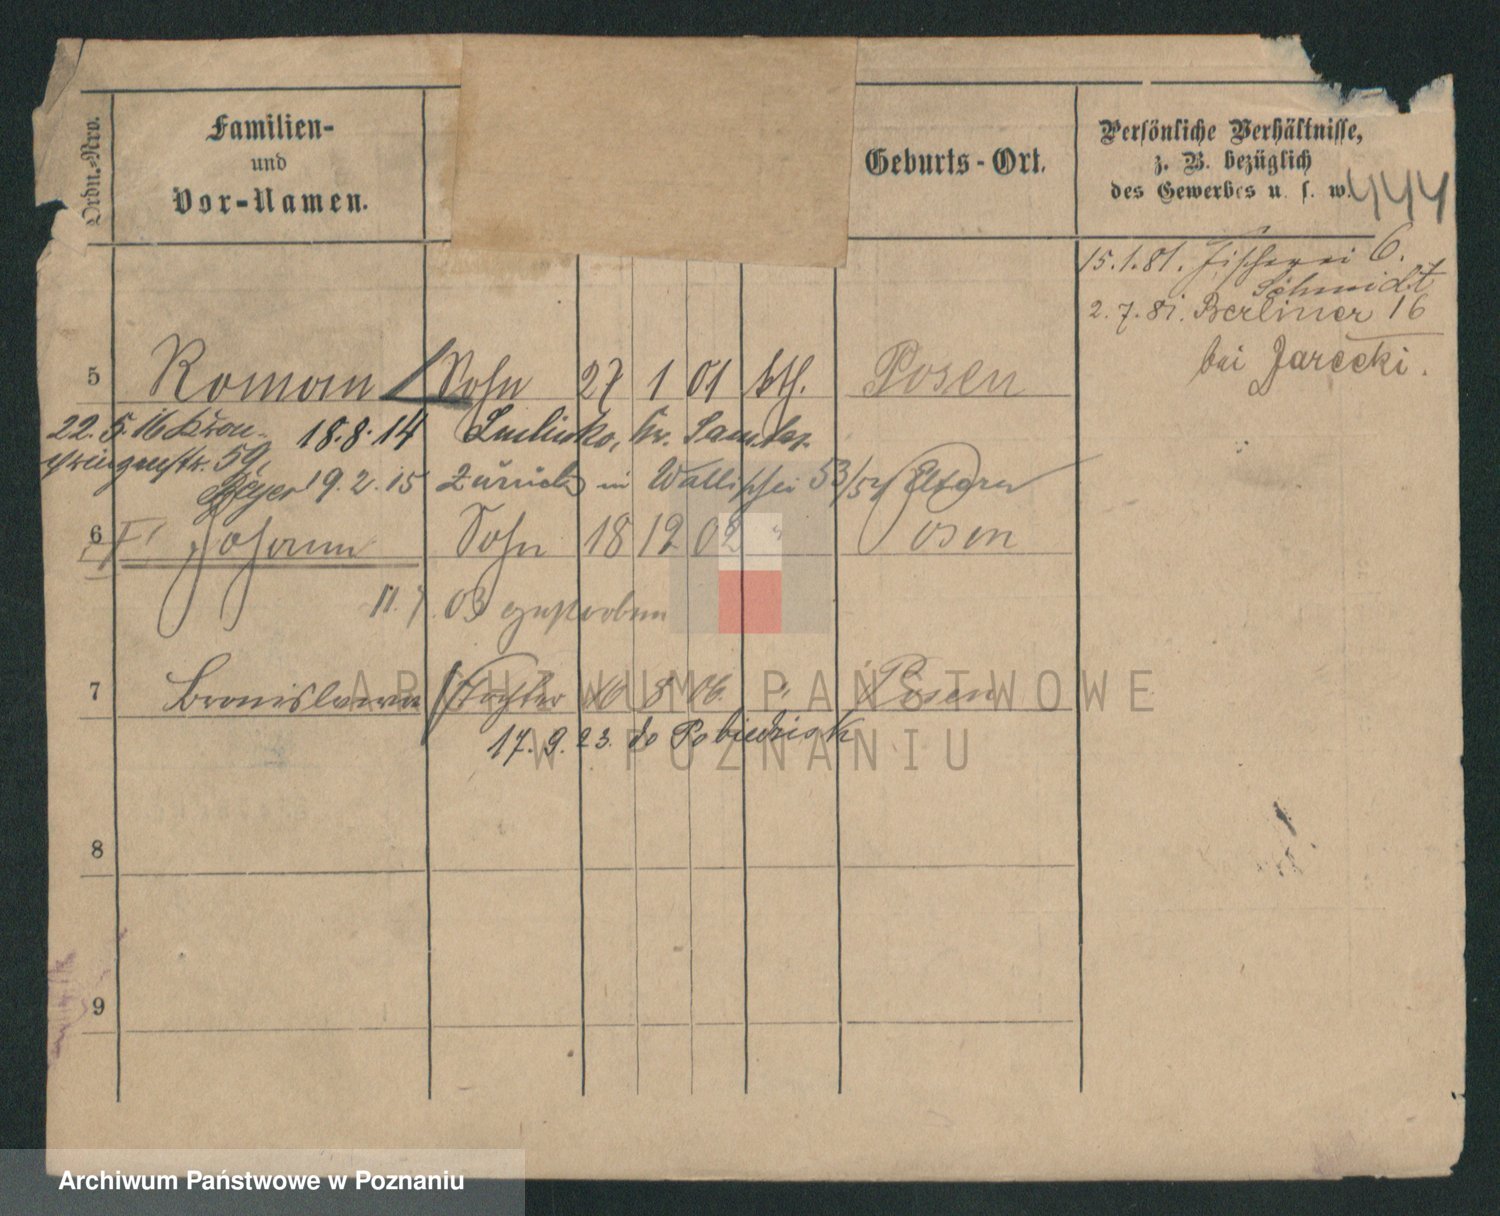 Ordn.-Nro.
Familien-
und
Vor-Namen.
Geburts-Ort.
Persönliche Verhältnisse,
z. B. bezüglich
des Gewerbes u. s. w.
444
15.1.81. Fischerei 6.
Schmidt
2.7.81. Berliner 16
bei Jarecki.
5 Roman Sohn 27 1 01 kth. Posen
22.5.16 Kron-
18.8.14
prinzenstr. 59,
Beyer
19.2.15 zurück in Wallischei 53/54 Eltern
6 Johann Sohn 18 12 02 " Posen
11.7.03 gestorben
7 Bronislawa Tochter 8 06 " Posen
17.9.23. do Pobiedzisk
8
9
ARCHIWUM PAŃSTWOWE
W POZNANIU
Archiwum Państwowe w Poznaniu